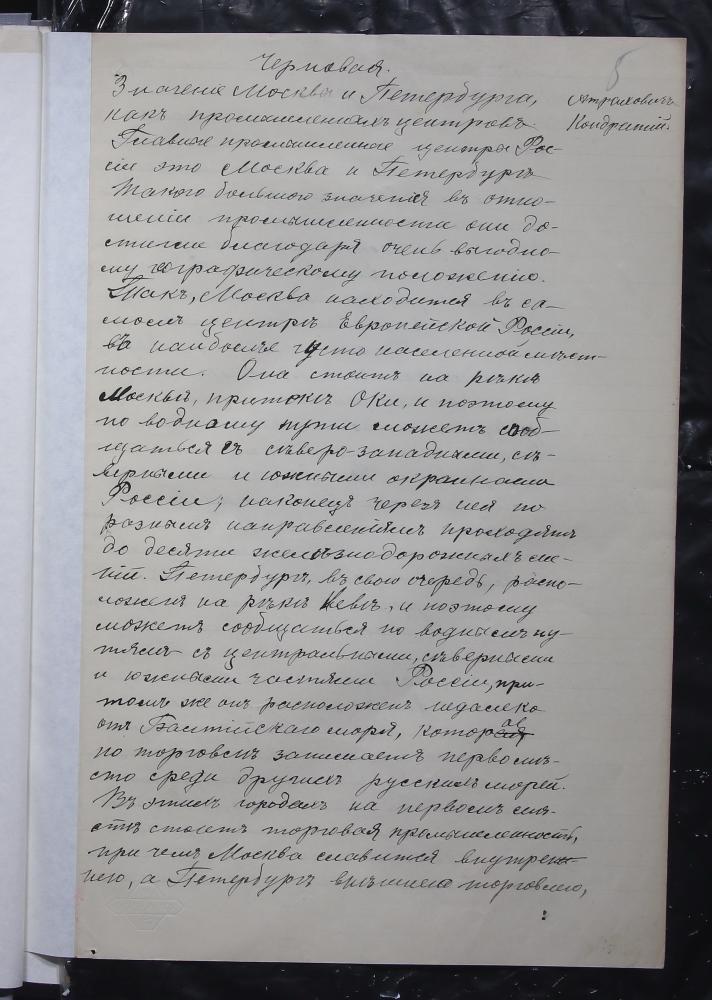 Черновая.
5
Значеніе Москвы и Петербурга,
Астраховичъ
какъ промышленныхъ центровъ.
Кондратій.
Главные промышленные центры Рос-
сіи это Москва и Петербургъ
Такого большого значенія въ отно-
шеніи промышленности они до-
стигли благодаря очень выгодно-
му географическому положенію.
Такъ, Москва находится въ са-
момъ центрѣ Европейской Россіи,
въ наиболѣе густо населенной мѣст-
ности. Она стоитъ на рѣкѣ
Москвѣ, притокѣ Оки, и поэтому
по водному пути можетъ сооб-
щаться съ сѣверо-западными, сѣ-
верными и южными окраинами
Россіи; наконецъ черезъ нея по
разнымъ направленіямъ проходятъ
до десяти желѣзнодорожныхъ ли-
ній. Петербургъ, въ свою очередь, распо-
ложенъ на рѣкѣ Невѣ, и поэтому
можетъ сообщаться по воднымъ пу-
тямъ съ центральными, сѣверными
и южными частями Россіи, при-
томъ же онъ расположенъ недалеко
отъ Балтійскаго моря, которое
по торговлѣ занимаетъ первое мѣ-
сто среди другихъ русскихъ морей.
Въ этихъ городахъ на первомъ мѣ-
стѣ стоитъ торговая промышленность,
при чемъ Москва славится внутрен-
нею, а Петербургъ внѣшнею торговлею,